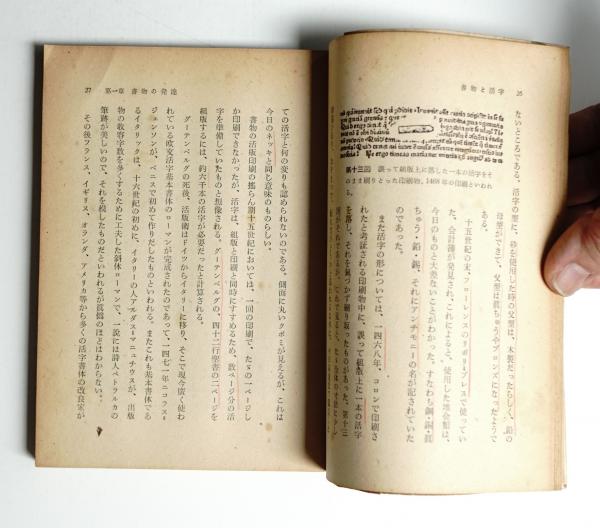 書物と活字
26
ないところである。活字の型に、砂を使用した時の父型は、木製だったらしく、鉛の
母型ができて、父型は眞ちゅうやブロンズになったようで
ある。
十五世紀の末、フローレンスのリポリイプレスで使ってい
た、会計簿が発見され、これによると、使用した地金類は、
今日のものと大差ないことがわかった。すなわち鋼・銅・眞
ちゅう・鉛・錫、それにアンチモニーの名が記されていた
のであった。
また活字の形については、一四六八年、コロンで印刷さ
れたと考証される印刷物中に、誤って組版上に一本の活字
を落し、それを氣づかず刷り取ったものがあった。第十三
第十三図 誤って組版上に落した一本の活字をそ
のまま刷りとった印刷物。1468年の印刷といわれ
る。
27
第一章 書物の発達
ての活字と何の変りも認められないのである。側面に丸いクボミが見えるが、これは
今日のネッキと同じ意味のものらしい。
書物の活版印刷の搖らん期十五世紀においては、一回の印刷で、たゞの一ページし
か印刷できなかったが、活字は、組版と印刷と同時にすすめるため、数ページ分の活
字を準備していたものと想像される。グーテンベルグの、四十二行聖書の二ページを
組版するには、約六千本の活字が必要だったと計算される。
グーテンベルグの死後、活版術はドイツからイタリーに移り、そこで現今廣く使わ
れている欧文活字基本書体のローマンが完成されたのであって、一四七一年ニコラス・
ジェンソンが、ベニスで初めて作りだしたものといわれる。またこれも基本書体であ
るイタリックは、十六世紀の初めに、イタリーの人アルダス・マニュチウスが、出版
物の收容字数を多くするために工夫した斜体ローマンで、一説には詩人ペトラルカの
筆跡が美しいので、それを模したものだといわれるが眞偽のほどはわからない。
その後フランス、イギリス、オランダ、アメリカ等から多くの活字書体の改良家が